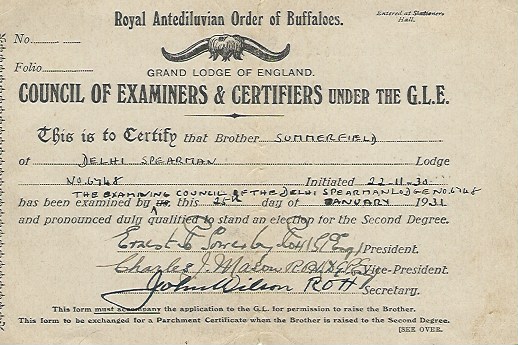 Royal Antediluvian Order of Buffaloes.
Entered at Stationers
Hall.
No.
Folio
GRAND LODGE OF ENGLAND.
COUNCIL OF EXAMINERS & CERTIFIERS UNDER THE G.L.E.
This is to Certify that Brother SUMMERFIELD
of DELHI SPEARMAN Lodge
No. 6748 Initiated 22-11-30
THE EXAMINING COUNCIL OF THE DELHI SPEARMAN LODGE NO. 6748
has been examined by us this 25th day of JANUARY 1931
and pronounced duly qualified to stand an election for the Second Degree.
Ernest President.
Charles J. Mason Vice-President.
John Wilson ROH Secretary.
This form must accompany the application to the G.L.E. for permission to raise the Brother.
This form to be exchanged for a Parchment Certificate when the Brother is raised to the Second Degree.
[SEE OVER.